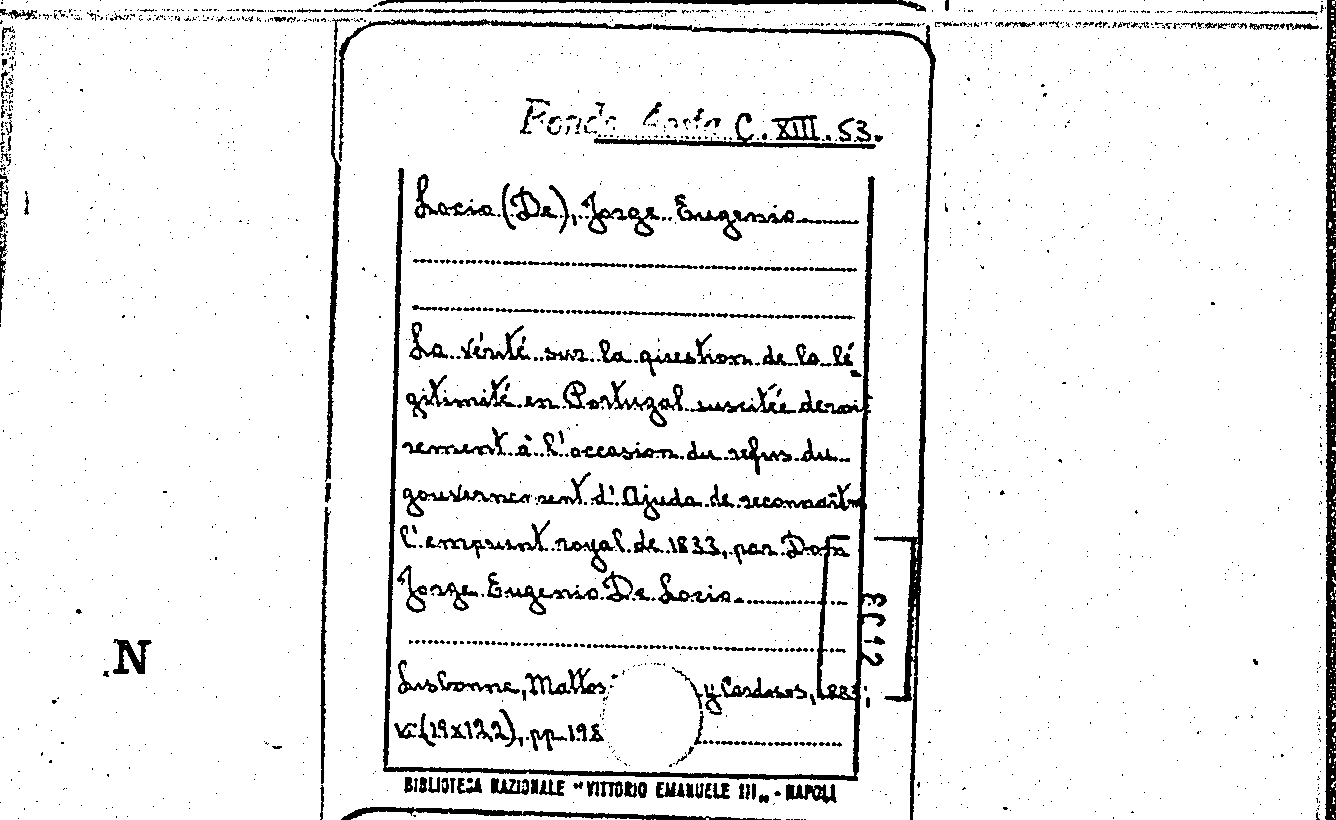 Fondo Costa C.XIII.53.
Locio (De), Jorge Eugenio
La vérité sur la question de la lé-
gitimité en Portugal suscitée derniè
rement à l'occasion du refus du
gouvernement d'Ajuda de reconnaître
l'emprunt royal de 1833, par Dom
Jorge Eugenio De Locio
EC12
Lisbonne, Mattos y Cardosos,
(19x12,2), pp. 198
N
BIBLIOTECA NAZIONALE "VITTORIO EMANUELE III„ - NAPOLI